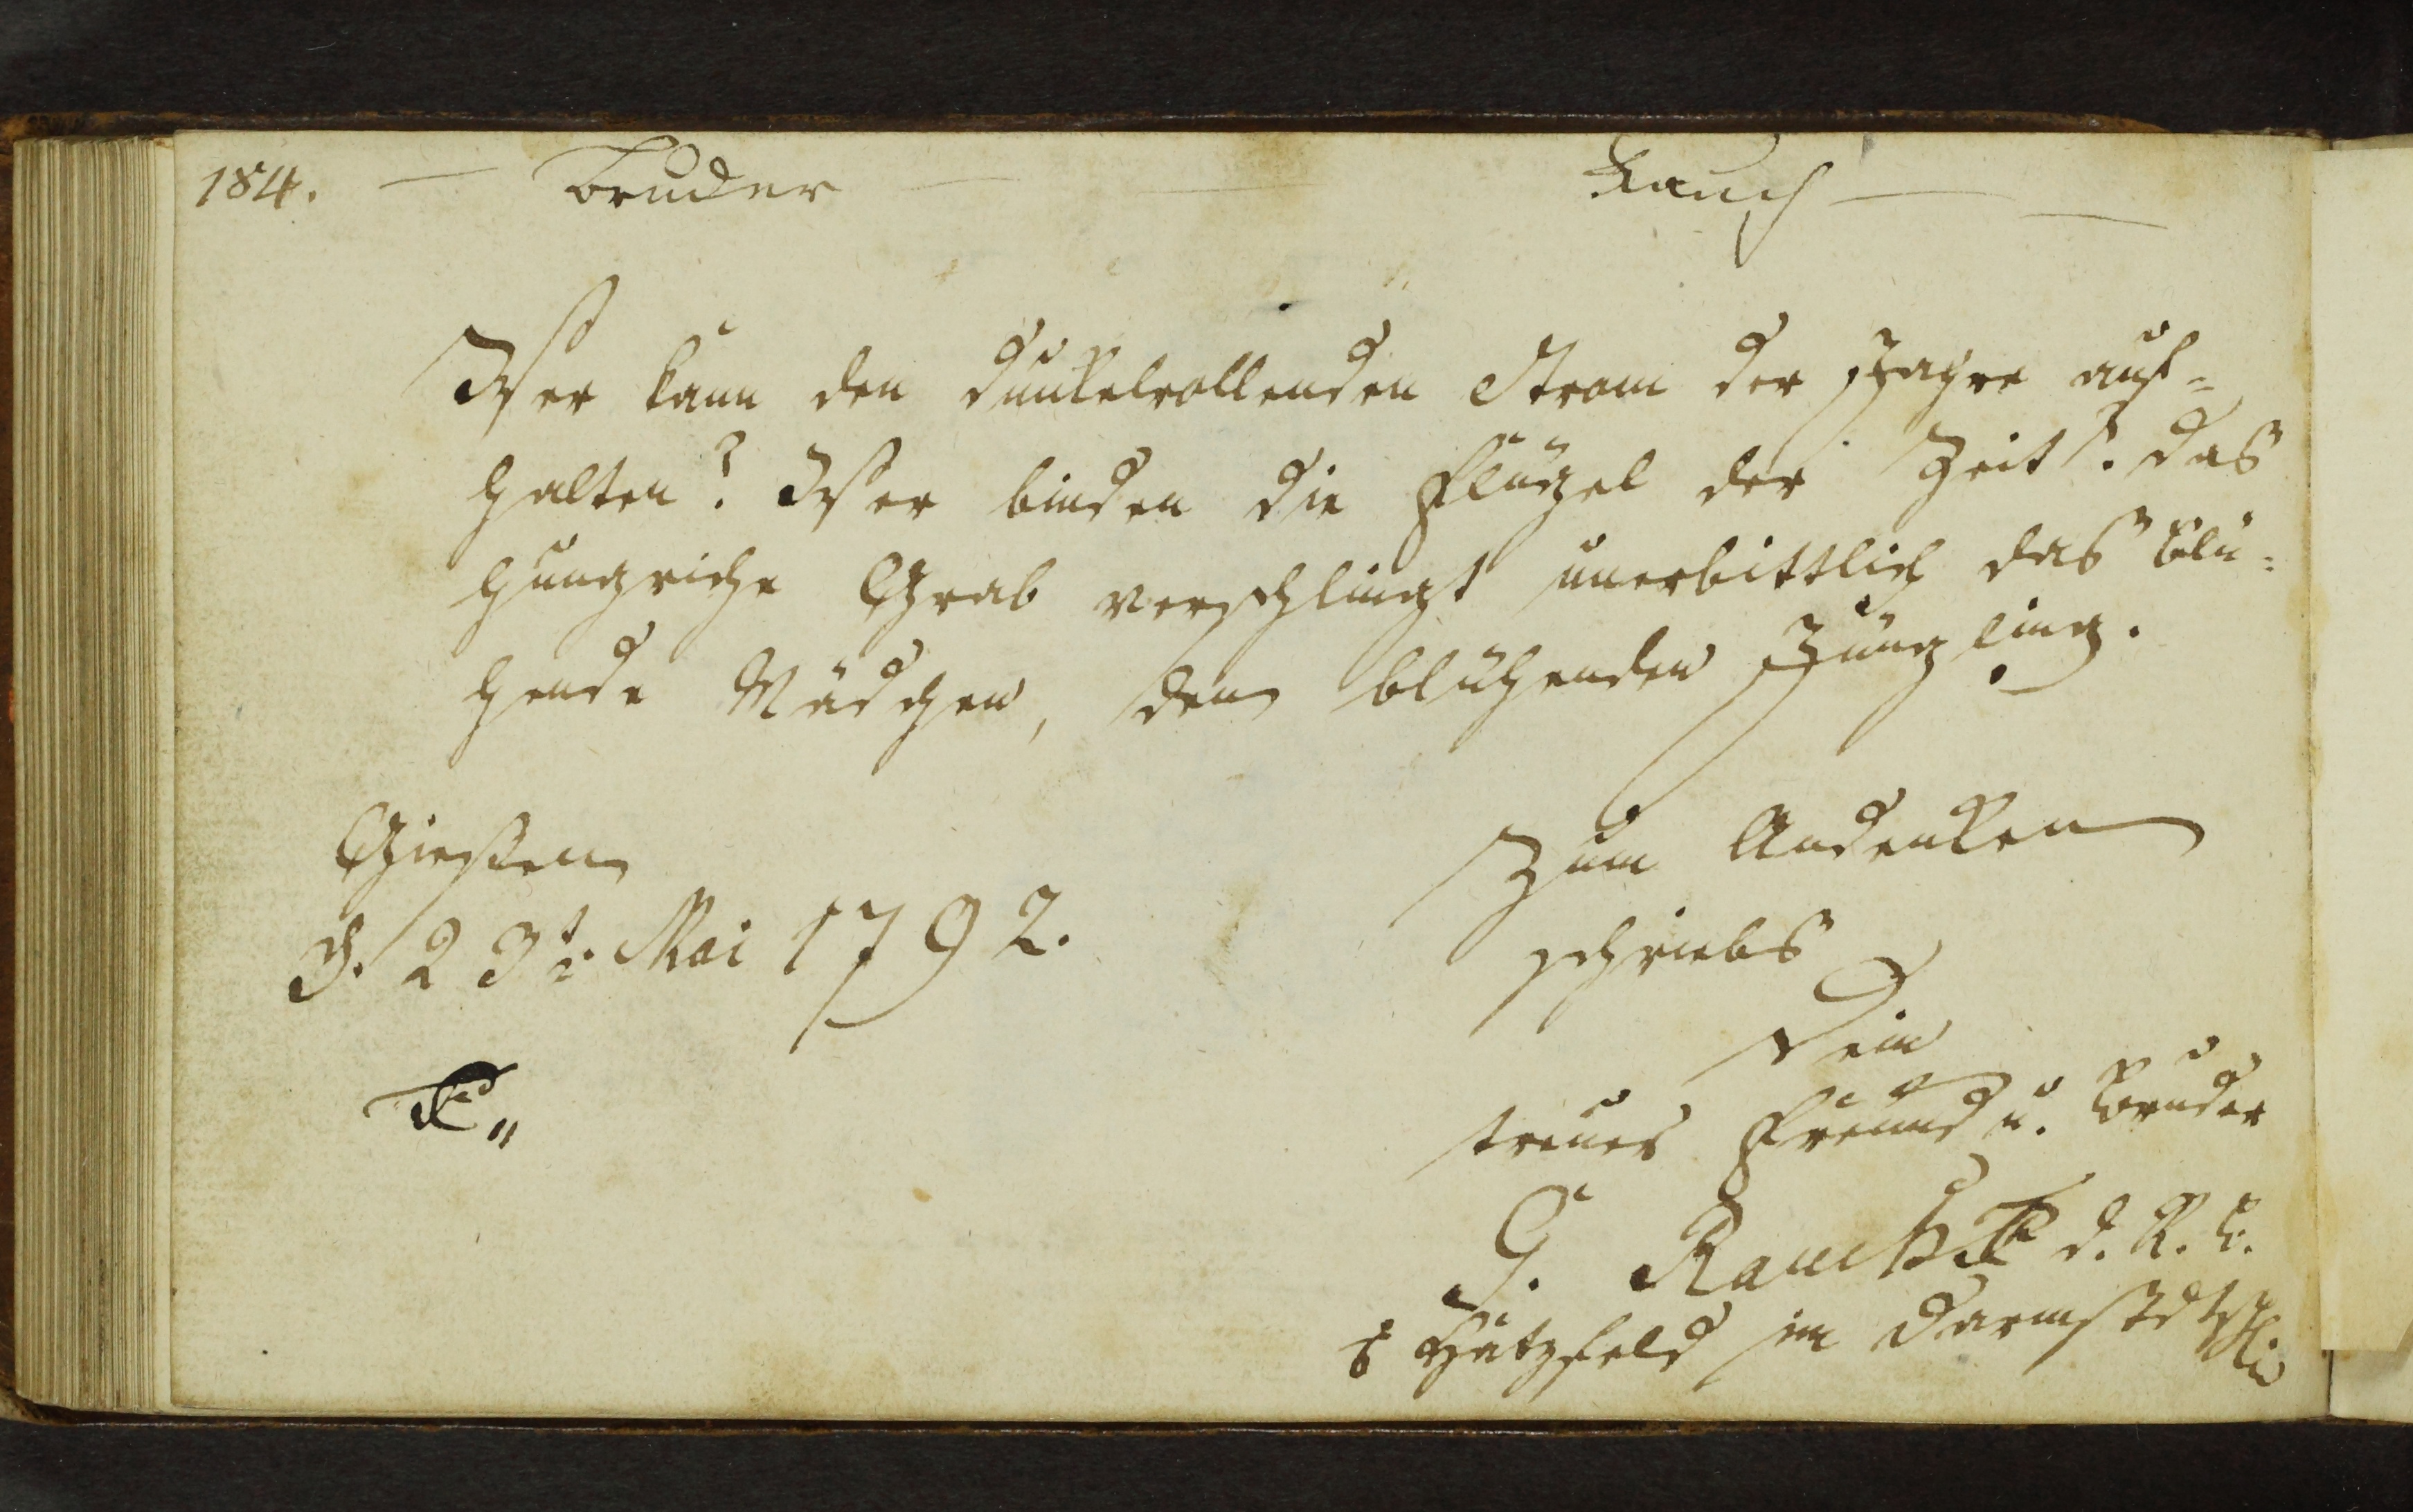 184. — Bruder — — Rauch — —
Wer kann den dunkelrollenden Strom der Jahre auf-
halten? Wer binden die Flügel der Zeit? das
hungriche Grab verschlingt unerbittlich das blü-
hende Mädchen, den blühenden Jüngling.
Giessen
d. 23t. Mai 1792.
Zum Andenken
schriebs
Dein
treuer Freund u. Bruder
G. Rauch d. R. L.
Hatzfeld im Darmstdtschn